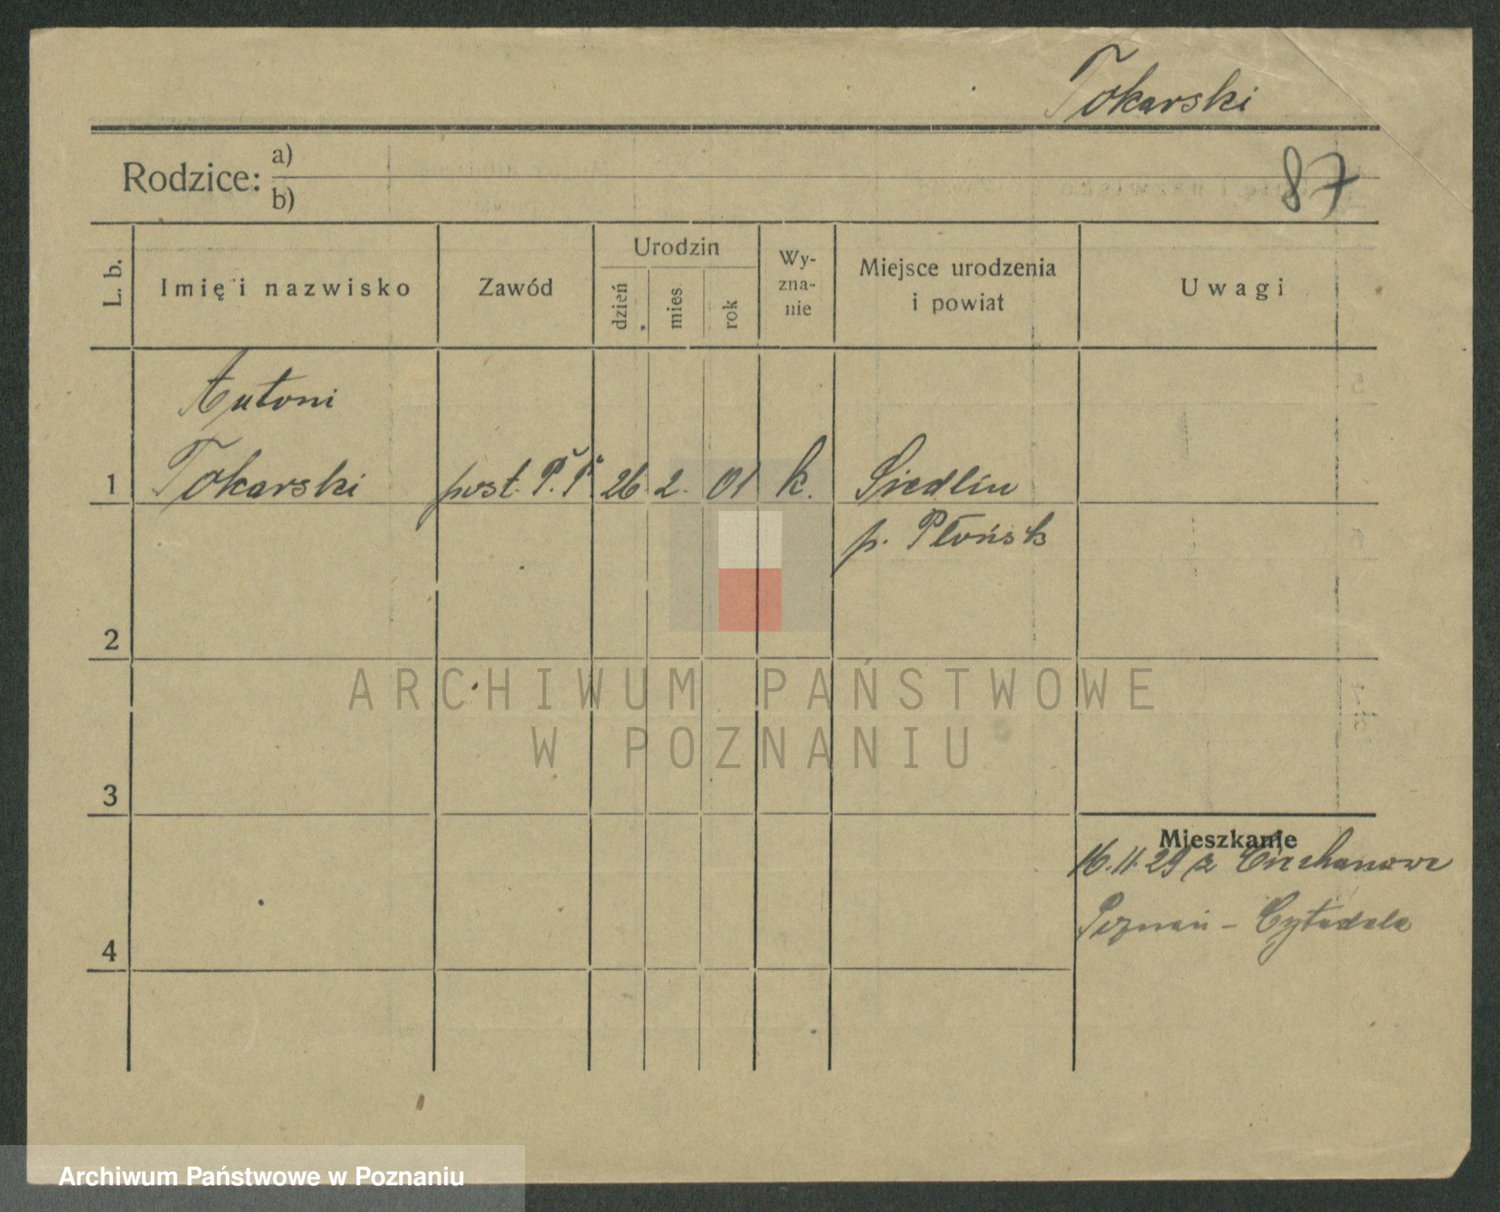 Tokarski
Rodzice: a)
b)
87
L. b.
Imię i nazwisko
Zawód
Urodzin
dzień
mies.
rok
Wy-
zna-
nie
Miejsce urodzenia
i powiat
Uwagi
Antoni
1 Tokarski post. P. P. 26. 2. 01 k. Siedlin
p. Płońsk
2
ARCHIWUM PAŃSTWOWE
W POZNANIU
3
Mieszkanie
16.11.29 z Ciechanowa
Poznań - Cytadela
4
Archiwum Państwowe w Poznaniu